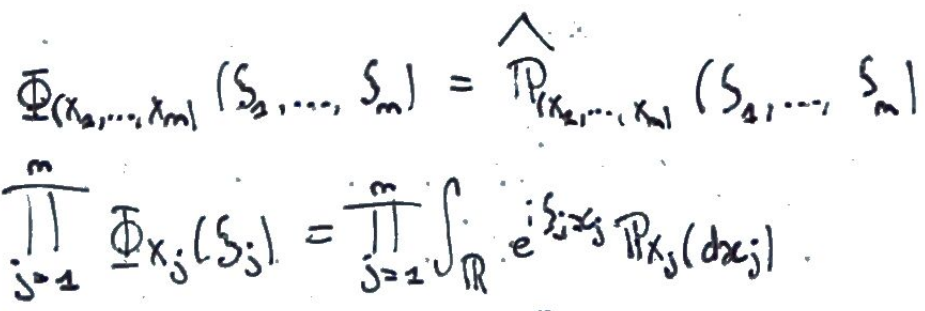 Φ_{(X_1,...,X_n)} (ξ_1,..., ξ_n) = \widehat{ℙ}_{(X_1,...,X_n)} (ξ_1,..., ξ_n)
∏_{j=1}^{n} Φ_{X_j}(ξ_j) = ∏_{j=1}^{n} ∫_ℝ e^{iξ_j x_j} ℙ_{X_j}(dx_j).